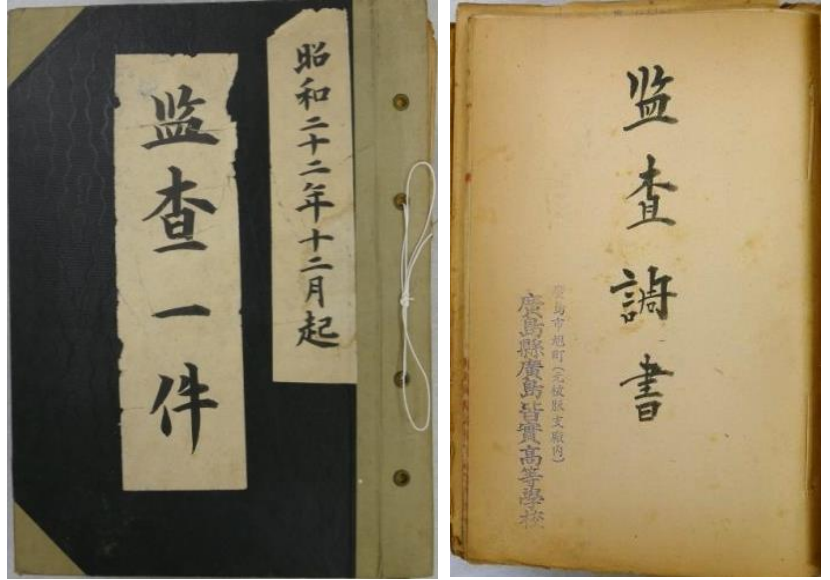 昭和二十二年十二月起
监査一件
监査調書
廣島市旭町(元被服支廠内)
廣島縣廣島皆實高等學校